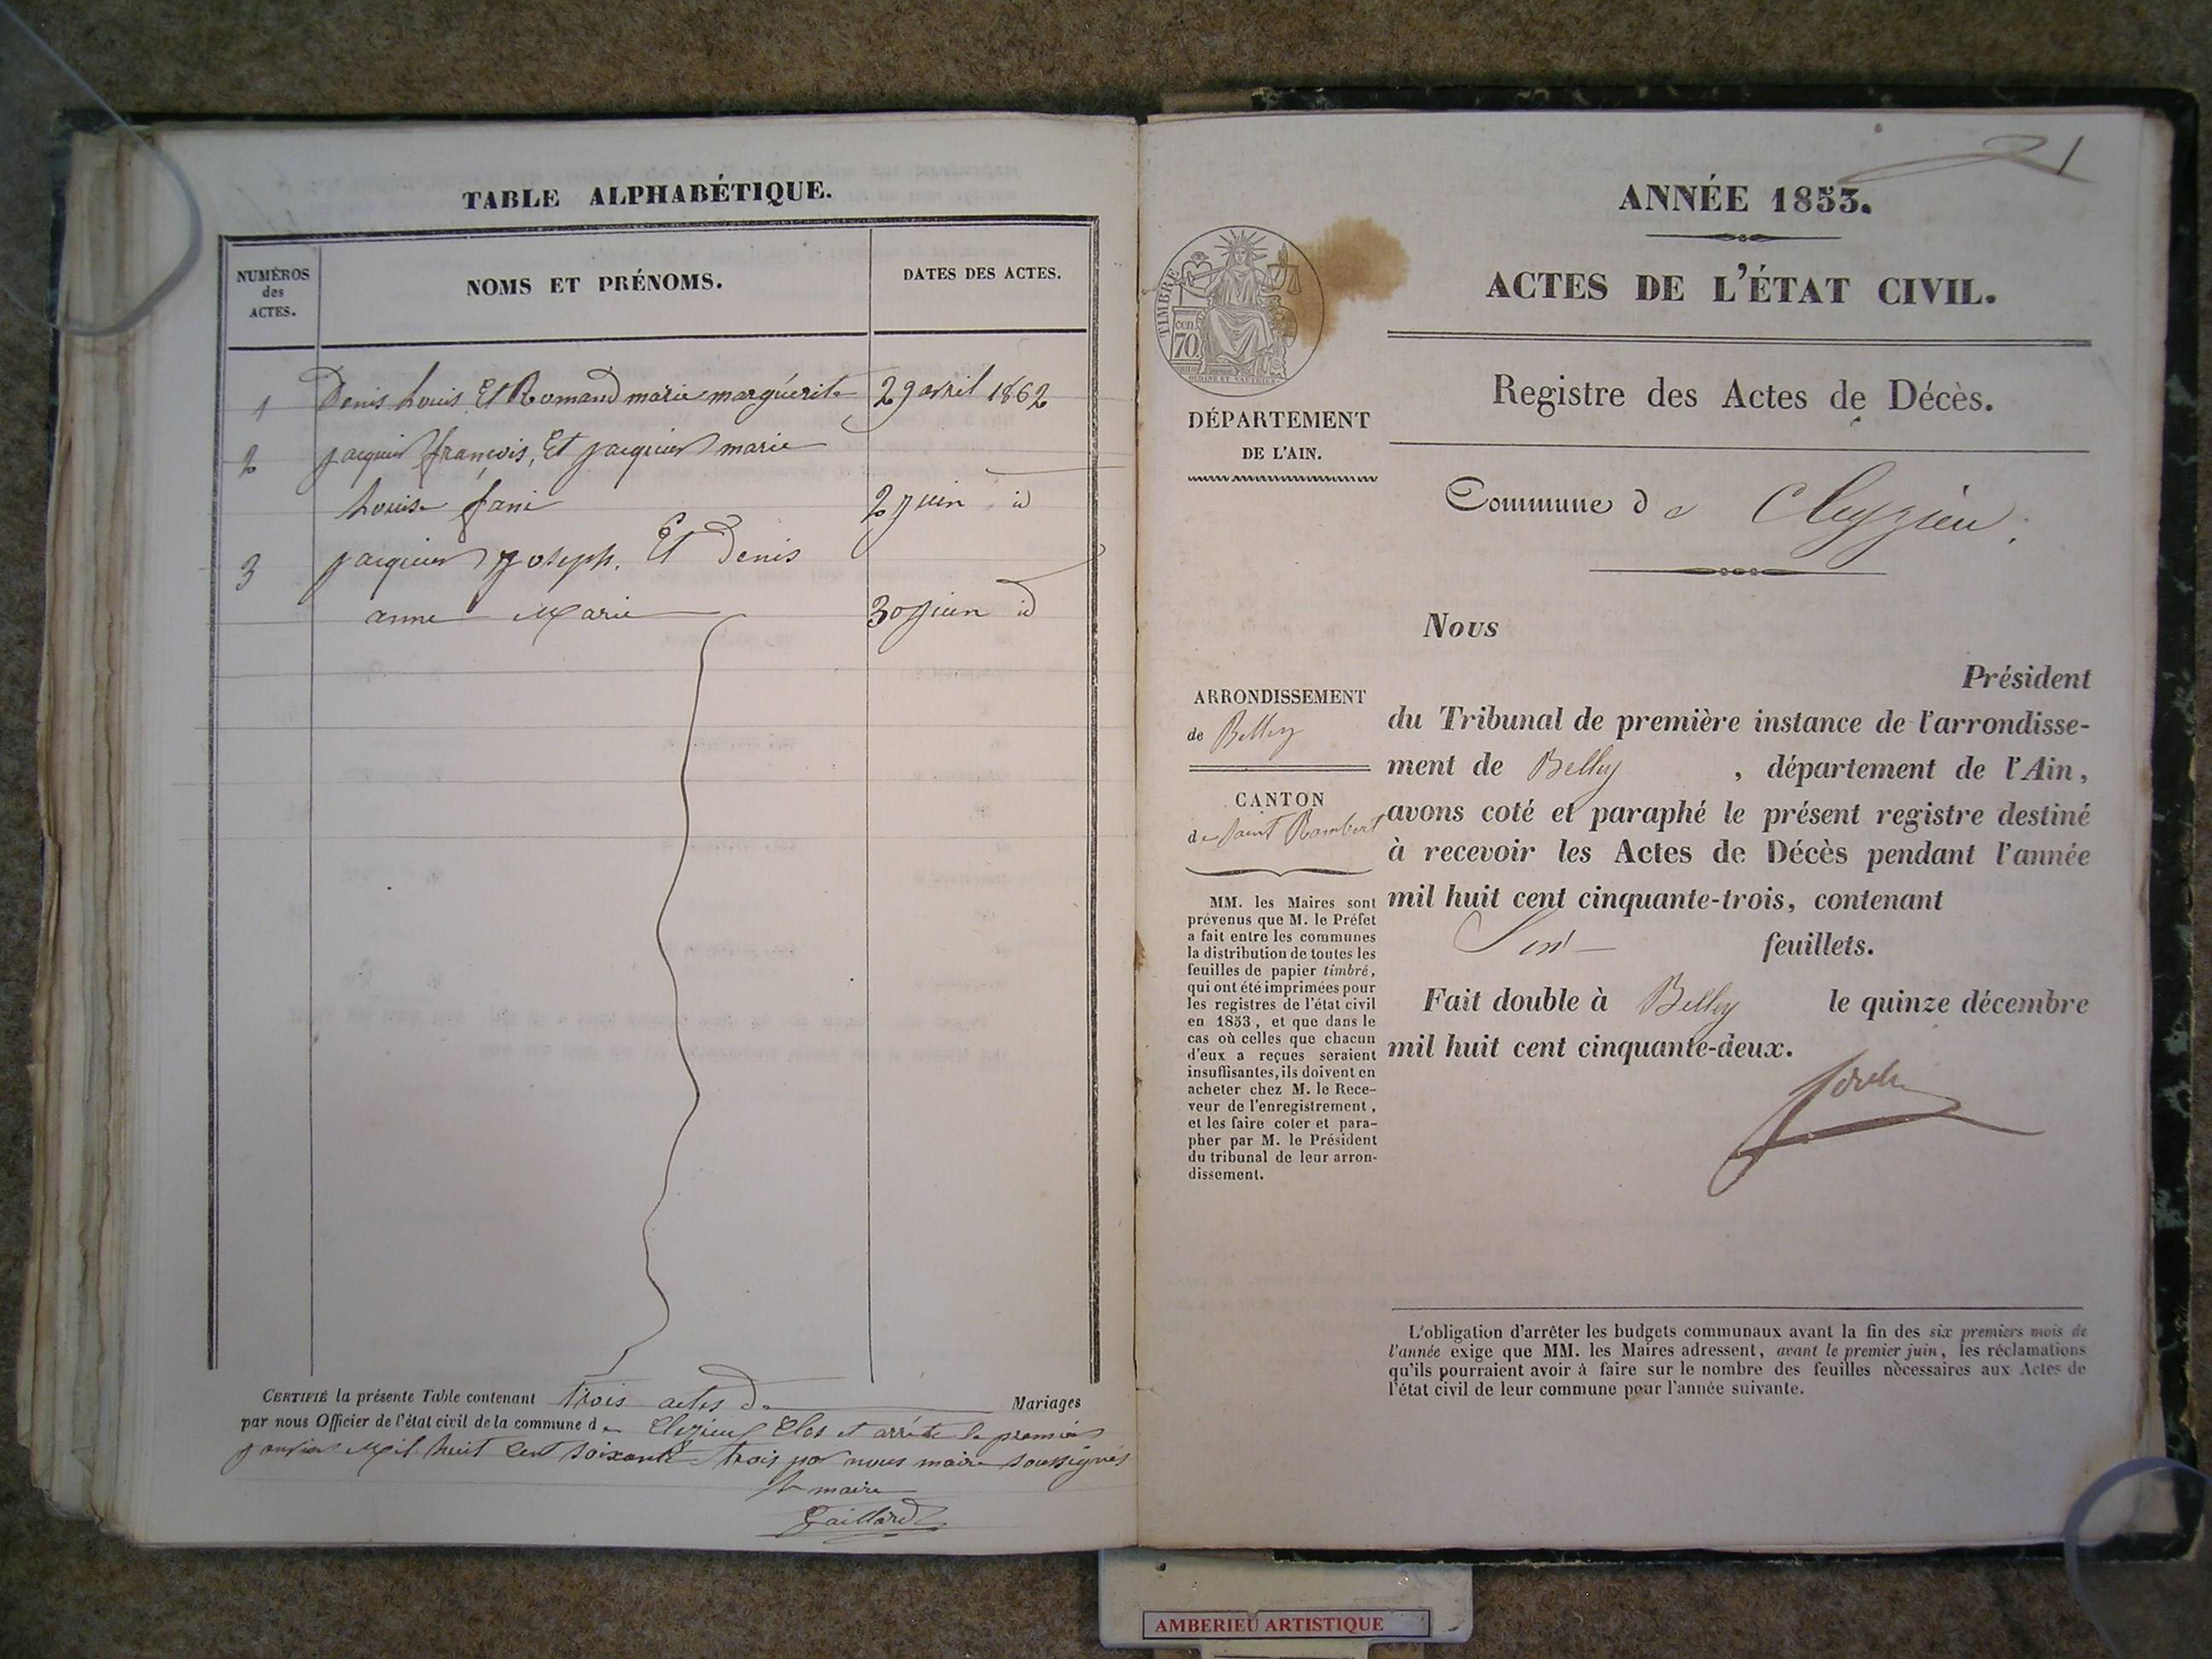 TABLE ALPHABÉTIQUE.
NUMÉROS
des
ACTES.
NOMS ET PRÉNOMS.
DATES DES ACTES.
1 Denis Louis Et Romand marie marguerite 29 avril 1862
2 jacquier françois, Et jacquier marie
Louise fani 2 juin id
3 jacquier joseph. Et Denis
anne Marie 30 juin id
CERTIFIÉ la présente Table contenant trois actes de Mariages
par nous Officier de l'état civil de la commune de Cleyzieu Clos et arrêté le premier
janvier Mil huit Cent soixante trois par nous maire soussigné
le maire
Gaillard
21
ANNÉE 1853.
ACTES DE L'ÉTAT CIVIL.
TIMBRE
cen.
70
OUDINE ET VAUTHIER.
Registre des Actes de Décès.
DÉPARTEMENT
DE L'AIN.
Commune de Cleyzieu.
Nous
Président
ARRONDISSEMENT
de Belley
du Tribunal de première instance de l'arrondisse-
ment de Belley, département de l'Ain,
CANTON
de Saint Rambert
avons coté et paraphé le présent registre destiné
à recevoir les Actes de Décès pendant l'année
mil huit cent cinquante-trois, contenant
feuillets.
Fait double à Belley le quinze décembre
mil huit cent cinquante-deux.
MM. les Maires sont
prévenus que M. le Préfet
a fait entre les communes
la distribution de toutes les
feuilles de papier timbré,
qui ont été imprimées pour
les registres de l'état civil
en 1853, et que dans le
cas où celles que chacun
d'eux a reçues seraient
insuffisantes, ils doivent en
acheter chez M. le Rece-
veur de l'enregistrement,
et les faire coter et para-
pher par M. le Président
du tribunal de leur arron-
dissement.
L'obligation d'arrêter les budgets communaux avant la fin des six premiers mois de
l'année exige que MM. les Maires adressent, avant le premier juin, les réclamations
qu'ils pourraient avoir à faire sur le nombre des feuilles nécessaires aux Actes de
l'état civil de leur commune pour l'année suivante.
AMBERIEU ARTISTIQUE